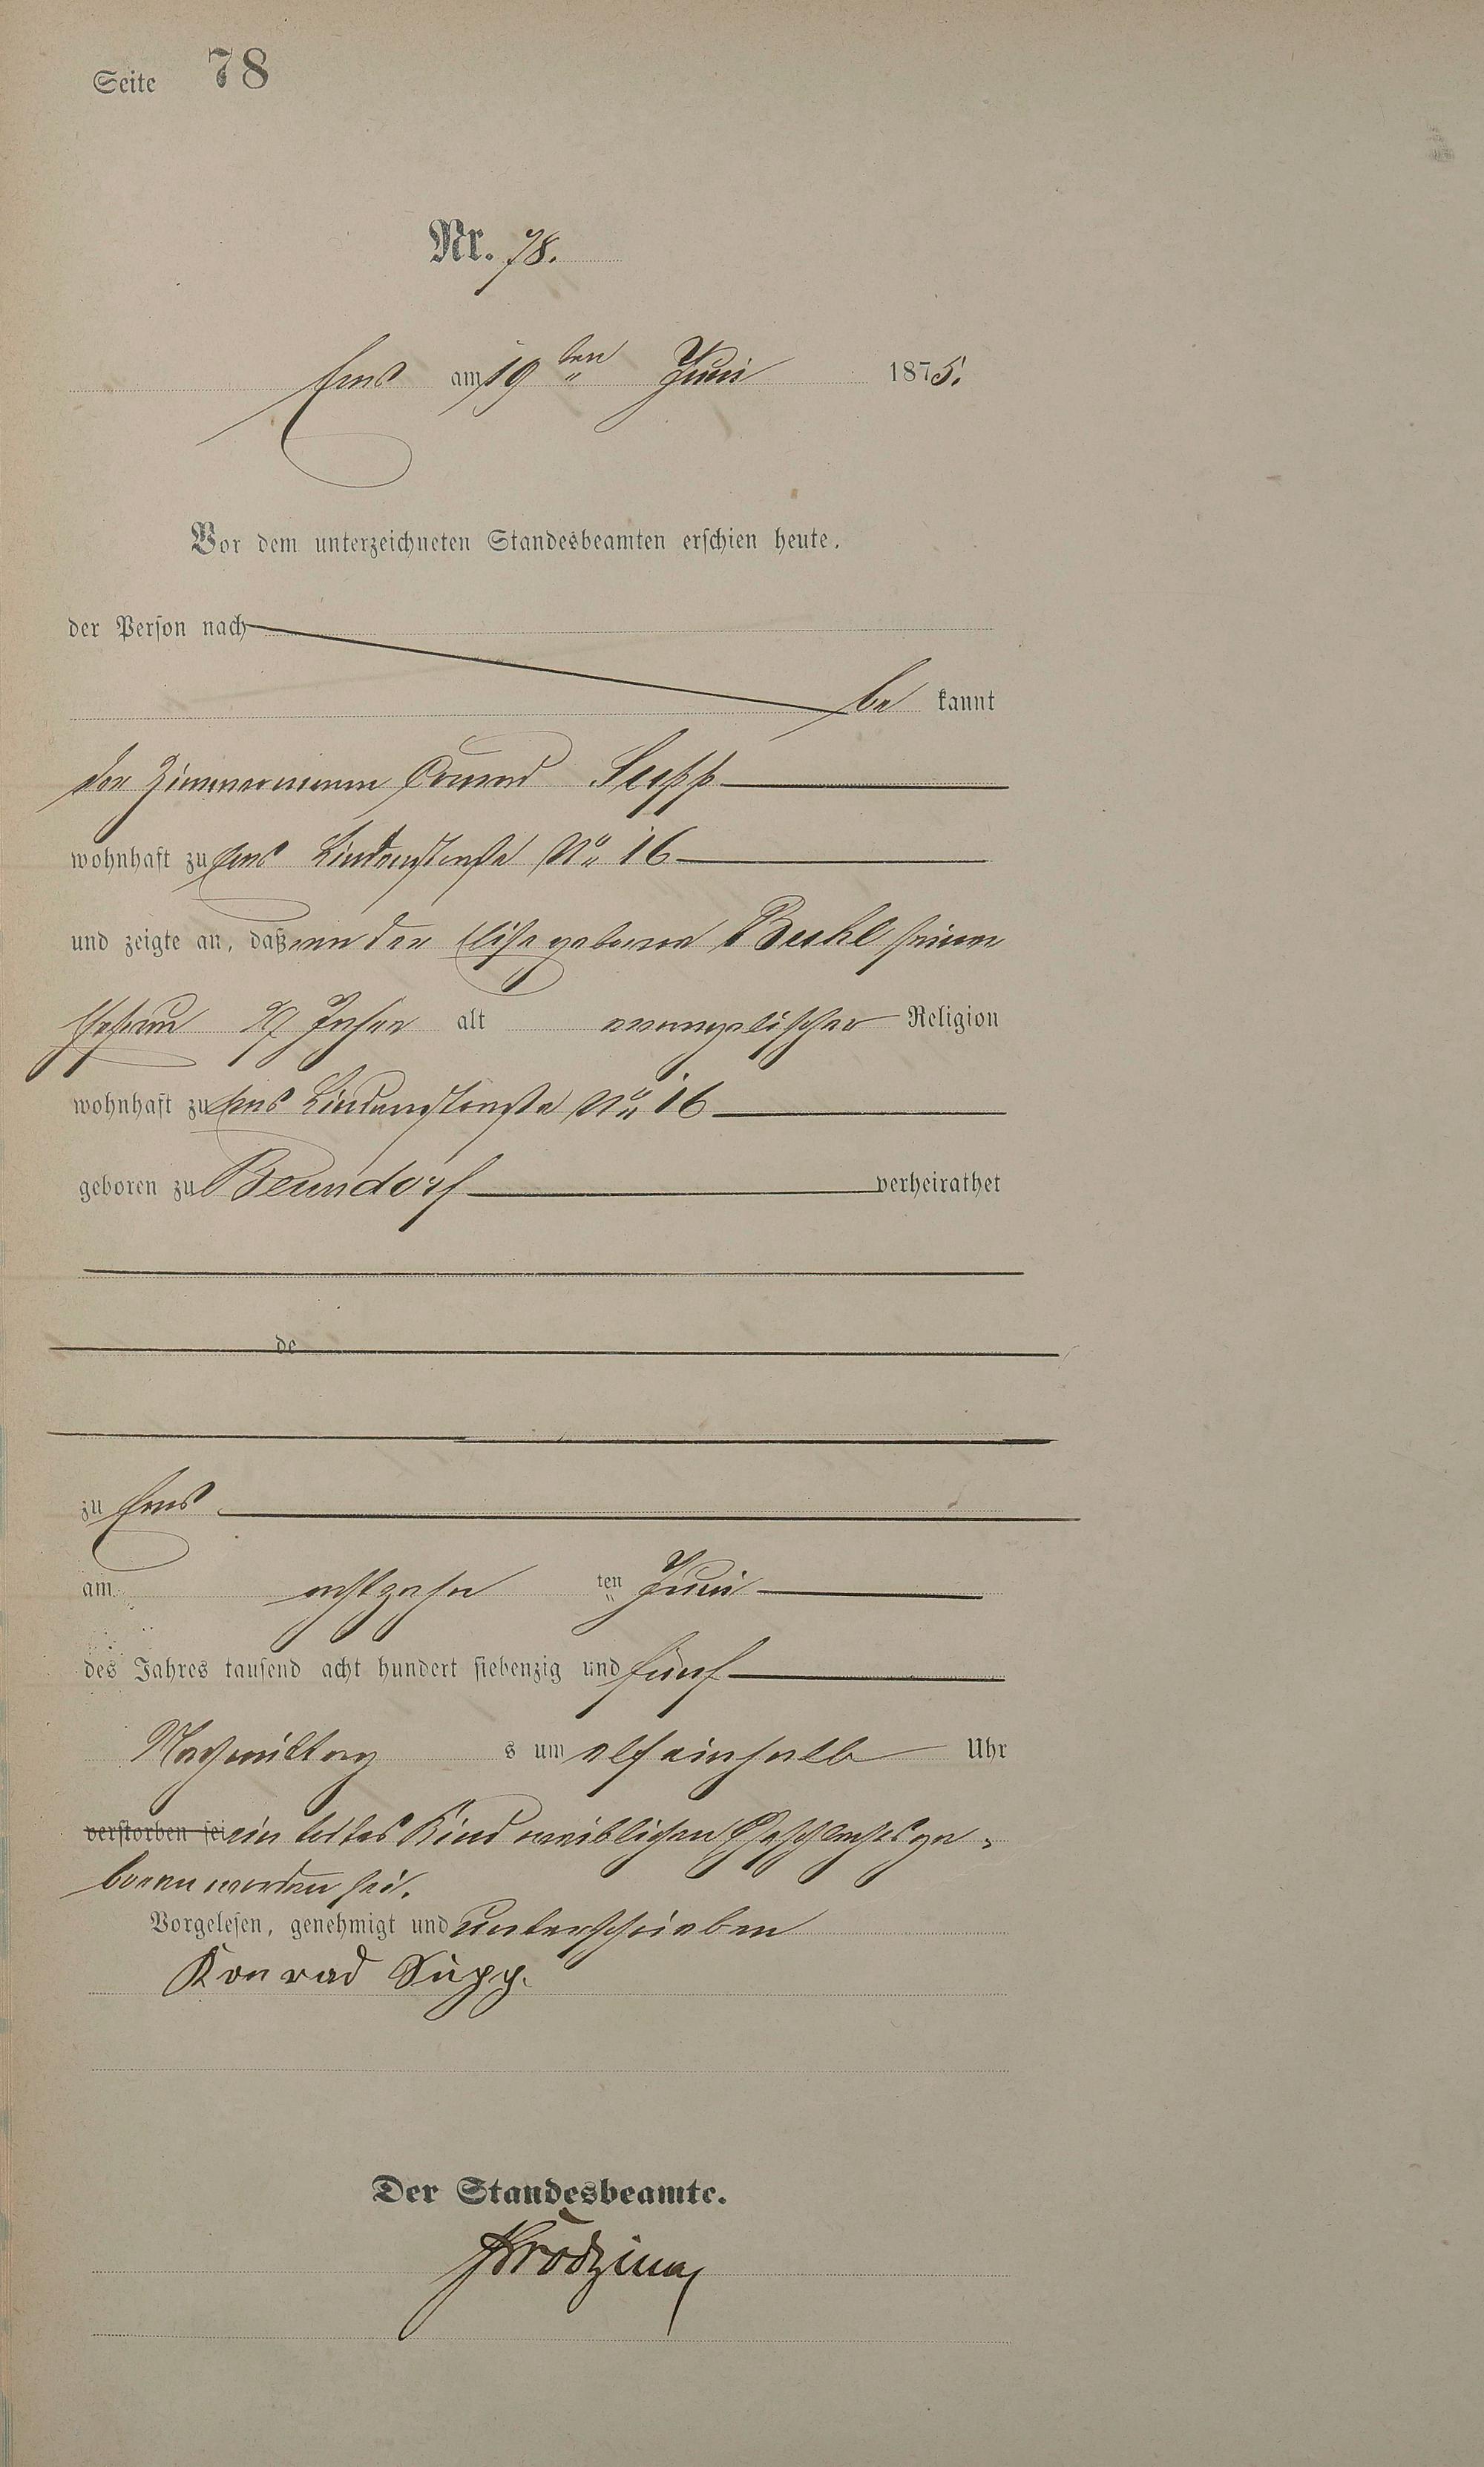 Seite 78
Nr. 78.
Ems am 19 ten Juni 1875.
Vor dem unterzeichneten Standesbeamten erschien heute,
der Person nach
be kannt
der Zimmermann Conrad Supp
wohnhaft zu Ems Lindenstraße No 16
und zeigte an, daß von der Elise geborene Buhl seiner
Ehefrau Jahre alt evangelischer Religion
wohnhaft zu Ems Lindenstraße No 16
geboren zu verheirathet
de
zu Ems
am achtzehn ten Juni
des Jahres tausend acht hundert siebenzig und fünf
Nachmittag s um elfeinhalb Uhr
verstorben sei ein todtes Kind weiblichen Geschlechts ge-
boren worden sei.
Vorgelesen, genehmigt und unterschrieben
Konrad Supp.
Der Standesbeamte.